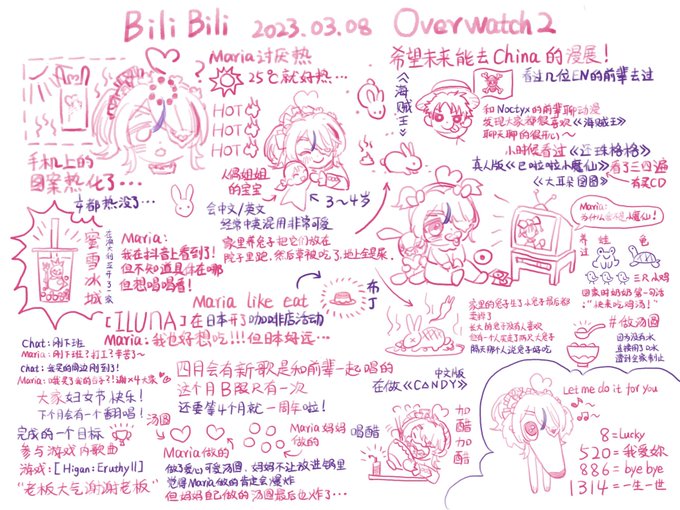 BiliBili 2023.03.08 Overwatch 2
手机上的
图案热化了…
都热没了…
Maria讨厌热
25℃就好热…
HOT
HOT
HOT
人偶姐姐
的宝宝
3~4岁
会中文/英文
经常中英混用非常可爱
家里养兔子把它们放在
院子里跑,然后草被吃了,地上全是屎
希望未来能去China的漫展!
看过几位EN的前辈去过
《海贼王》
和Noctyx的前辈聊动漫
发现大家都很喜欢《海贼王》
聊天聊的很开心~
小时候看过《还珠格格》
真人版《巴啦啦小魔仙》看了三四遍
《大耳朵图图》有买CD
Maria:
为什么我不是小魔仙!
养过
蛙
龟
三只小鸡
回家时奶奶第一句话
:"快来吃鸡汤!"
蜜雪冰城
Maria:
我在抖音上看到了!
但不知道具体在哪
但想喝喝看!
Maria like eat
布丁
[ILUNA]在日本开了咖啡店活动
Maria:我也好想吃!!!但日本好远…
家里的兔子生了小兔子后都
隔天那个人说兔子好吃
#做汤圆
因为没有水
直接用了冷水
Chat:刚下班
Maria:刚下班?打工?辛苦了~
大家妇女节快乐!
下个月会有一个翻唱!
四月会有新歌是和前辈一起唱的
这个月B服只有一次
还要等4个月就一周年啦!
中文版
在做《CANDY》
完成的一个目标
参与游戏内歌曲
游戏:[Higan:Eruthyll]
"老板大气谢谢老板"
汤圆
Maria做的
Maria妈妈
做的
做了爱心可爱汤圆,妈妈不让放进锅里
觉得Maria做的肯定会爆炸
但妈妈自己做的汤圆最后也炸了…
唱醋
加醋
加醋
Let me do it for you
8=Lucky
520=我爱你
886=bye bye
1314=一生一世